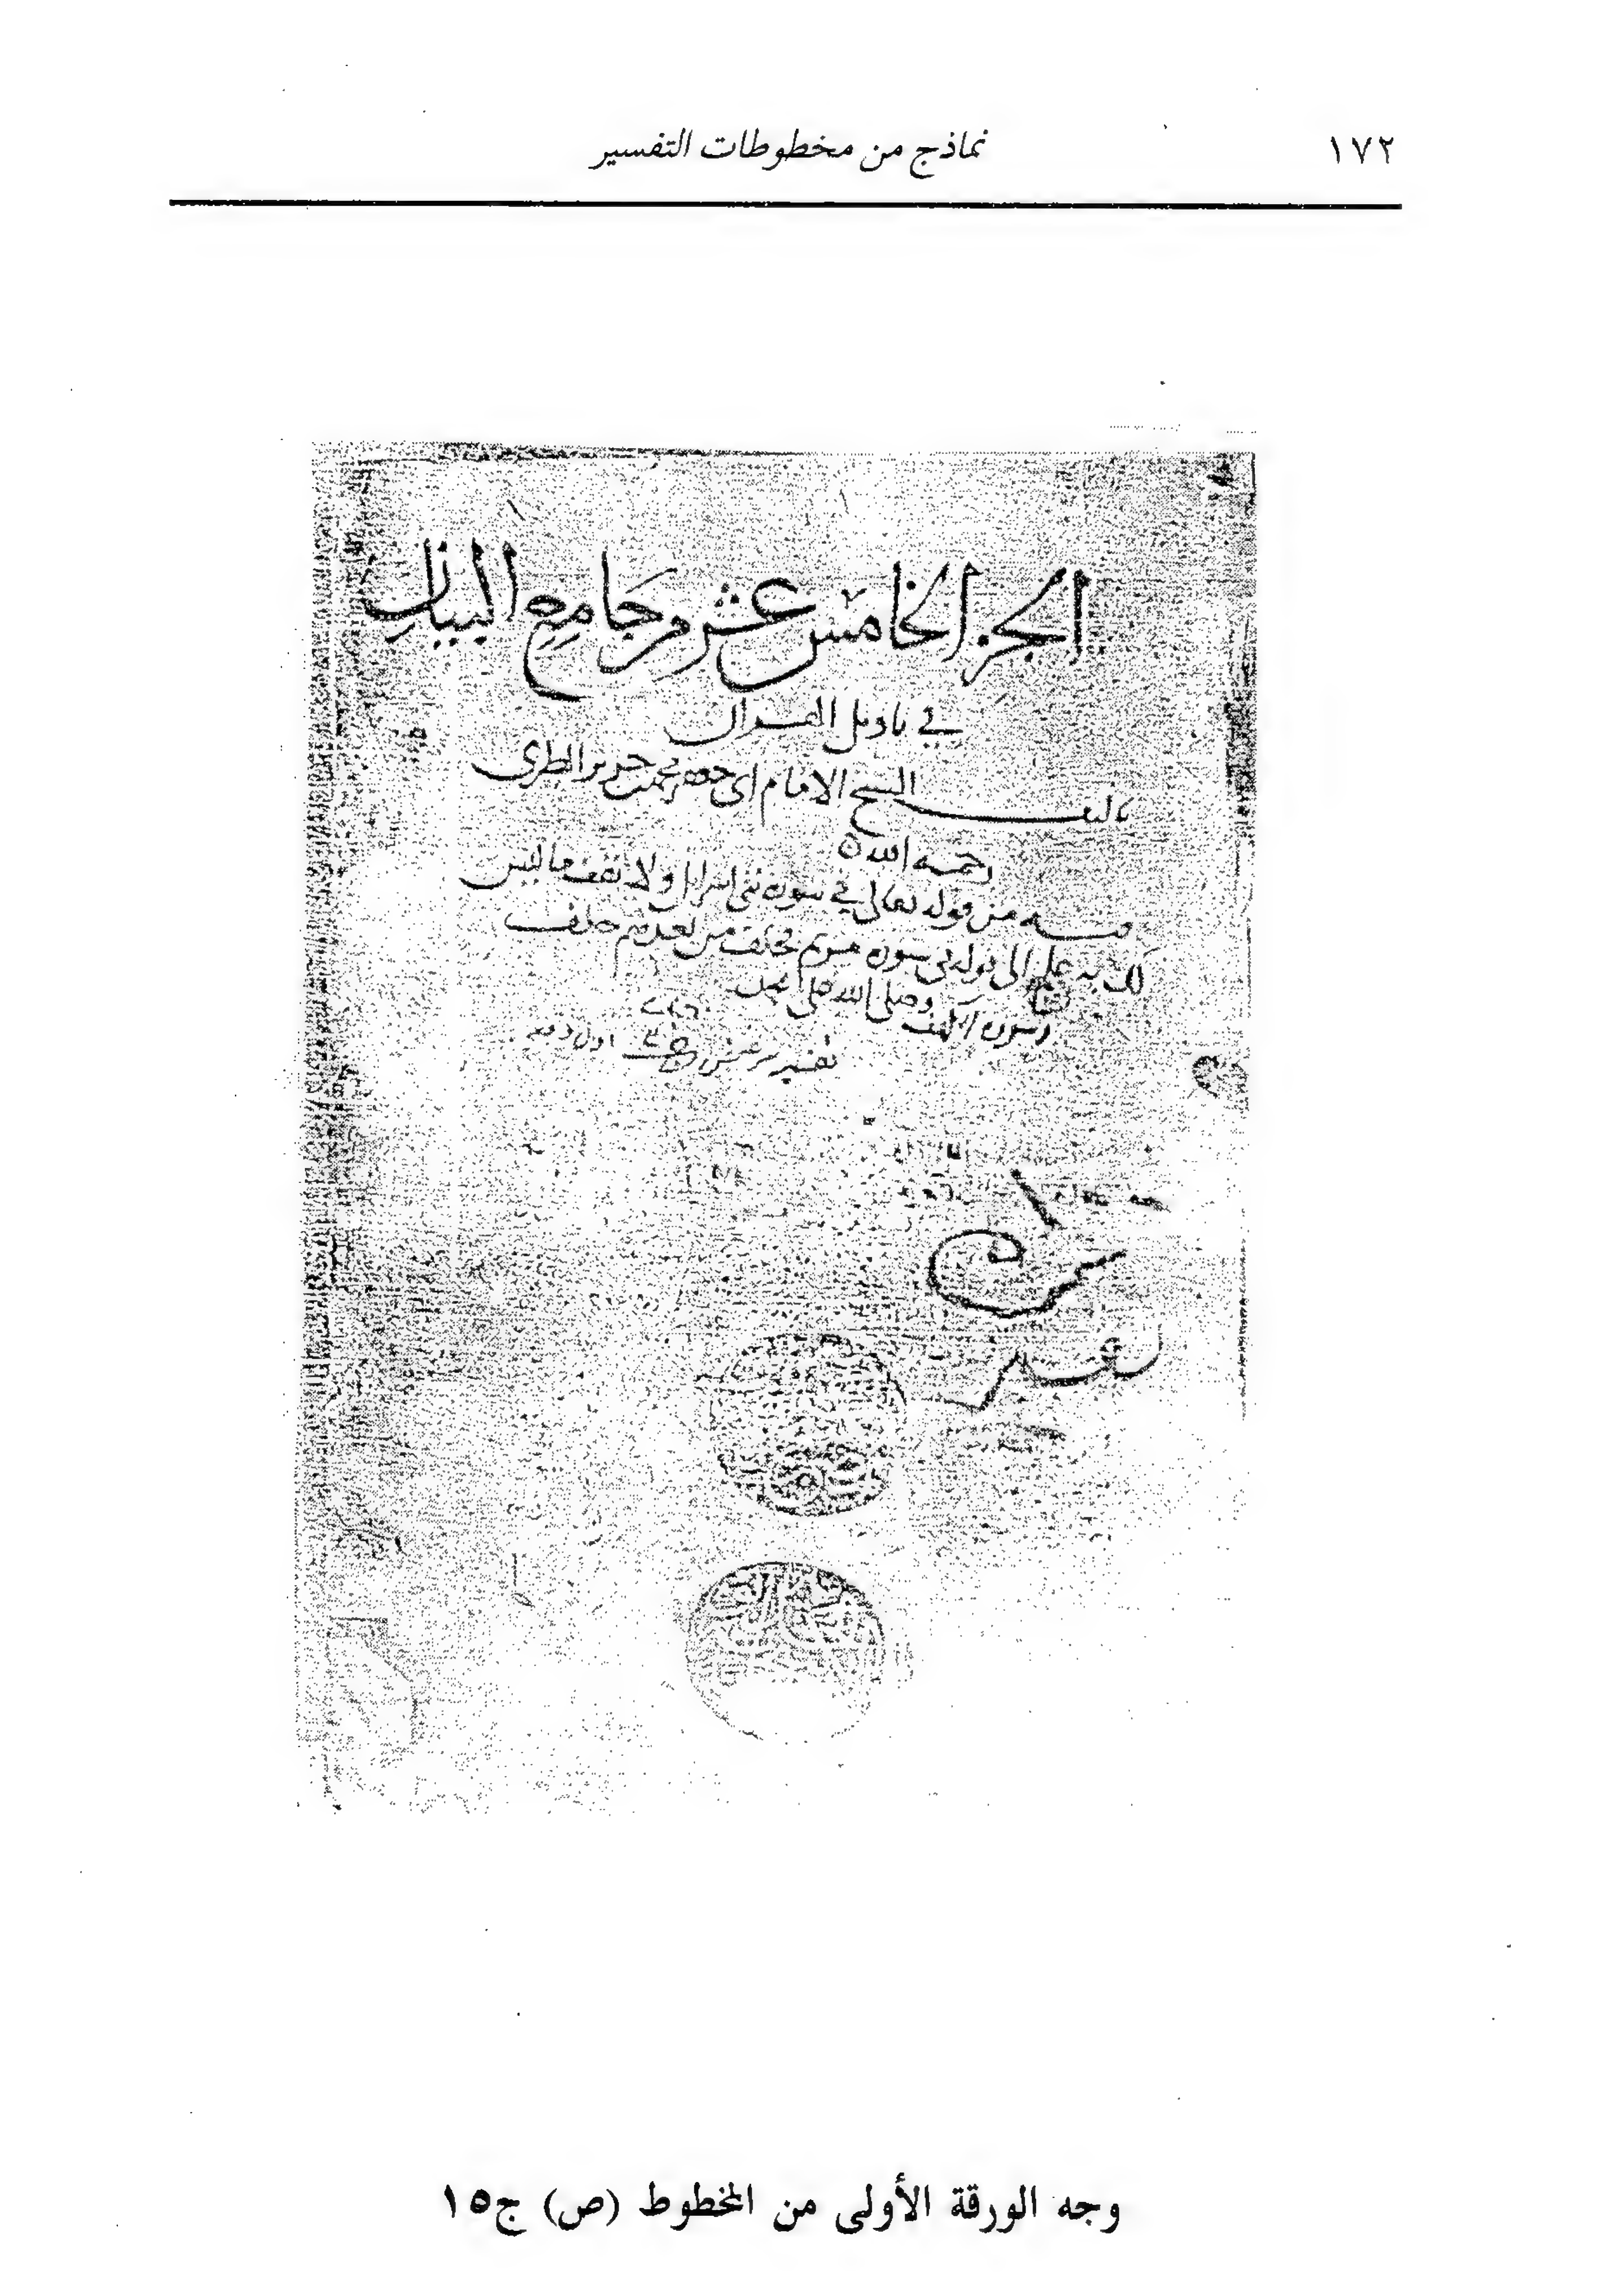 ١٧٢
نماذج من مخطوطات التفسير
الجز الخامس عشر من جامع البيان
في تاويل القران
تاليف الشيخ الامام ابي جعفر محمد بن جرير الطبري
رحمه الله
فيه من قوله تعالى في سورة بني اسرايل ولا تقف ما ليس
لك به علم الى قوله في سورة مريم فخلف من بعدهم خلف
وسورة الكهف وصلى الله على محمد
تفسير
وجه الورقة الأولى من المخطوط (ص) ج١٥